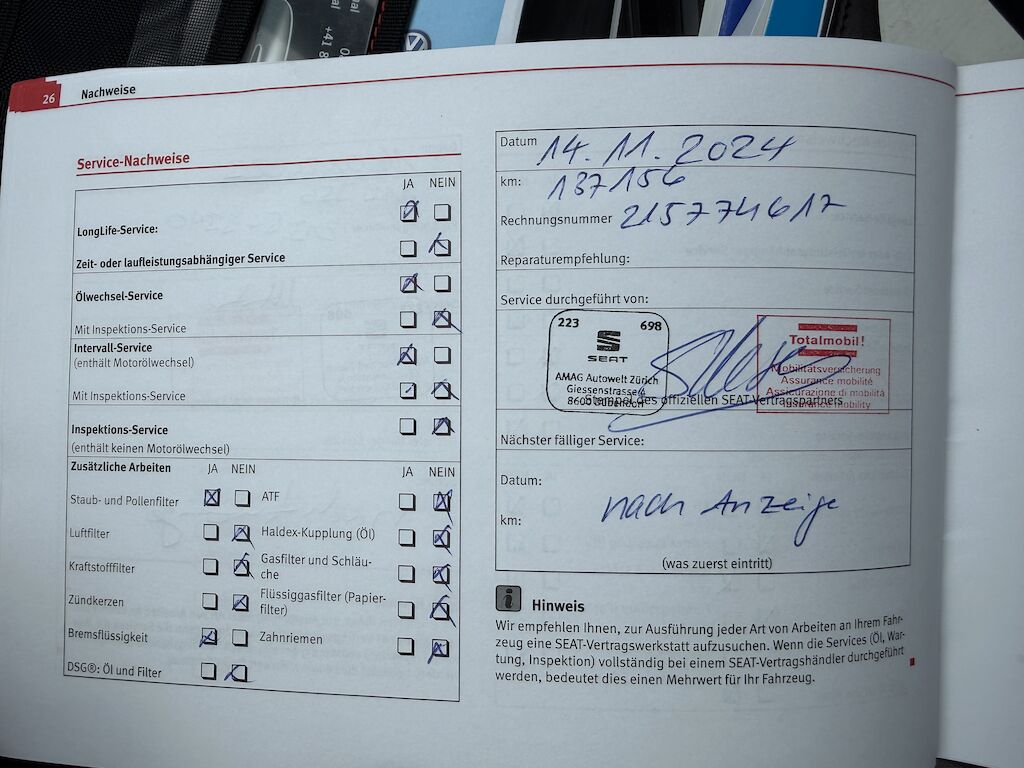 26 Nachweise
Service-Nachweise
JA NEIN
LongLife-Service:
Zeit- oder laufleistungsabhängiger Service
Ölwechsel-Service
Mit Inspektions-Service
Intervall-Service
(enthält Motorölwechsel)
Mit Inspektions-Service
Inspektions-Service
(enthält keinen Motorölwechsel)
Zusätzliche Arbeiten JA NEIN JA NEIN
Staub- und Pollenfilter ATF
Luftfilter Haldex-Kupplung (Öl)
Kraftstofffilter Gasfilter und Schläu-
che
Zündkerzen Flüssiggasfilter (Papier-
filter)
Bremsflüssigkeit Zahnriemen
DSG®: Öl und Filter
Datum 14.11.2024
km: 137156
Rechnungsnummer 2157774617
Reparaturempfehlung:
Service durchgeführt von:
223 698
SEAT
AMAG Autowelt Zürich
Giessenstrasse
Totalmobil!
Mobilitätsversicherung
Assurance mobilité
Assicurazione di mobilità
Insurance mobility
Stempel des offiziellen SEAT-Vertragspartners
Nächster fälliger Service:
Datum:
nach Anzeige
km:
(was zuerst eintritt)
i Hinweis
Wir empfehlen Ihnen, zur Ausführung jeder Art von Arbeiten an Ihrem Fahr-
zeug eine SEAT-Vertragswerkstatt aufzusuchen. Wenn die Services (Öl, War-
tung, Inspektion) vollständig bei einem SEAT-Vertragshändler durchgeführt
werden, bedeutet dies einen Mehrwert für Ihr Fahrzeug.